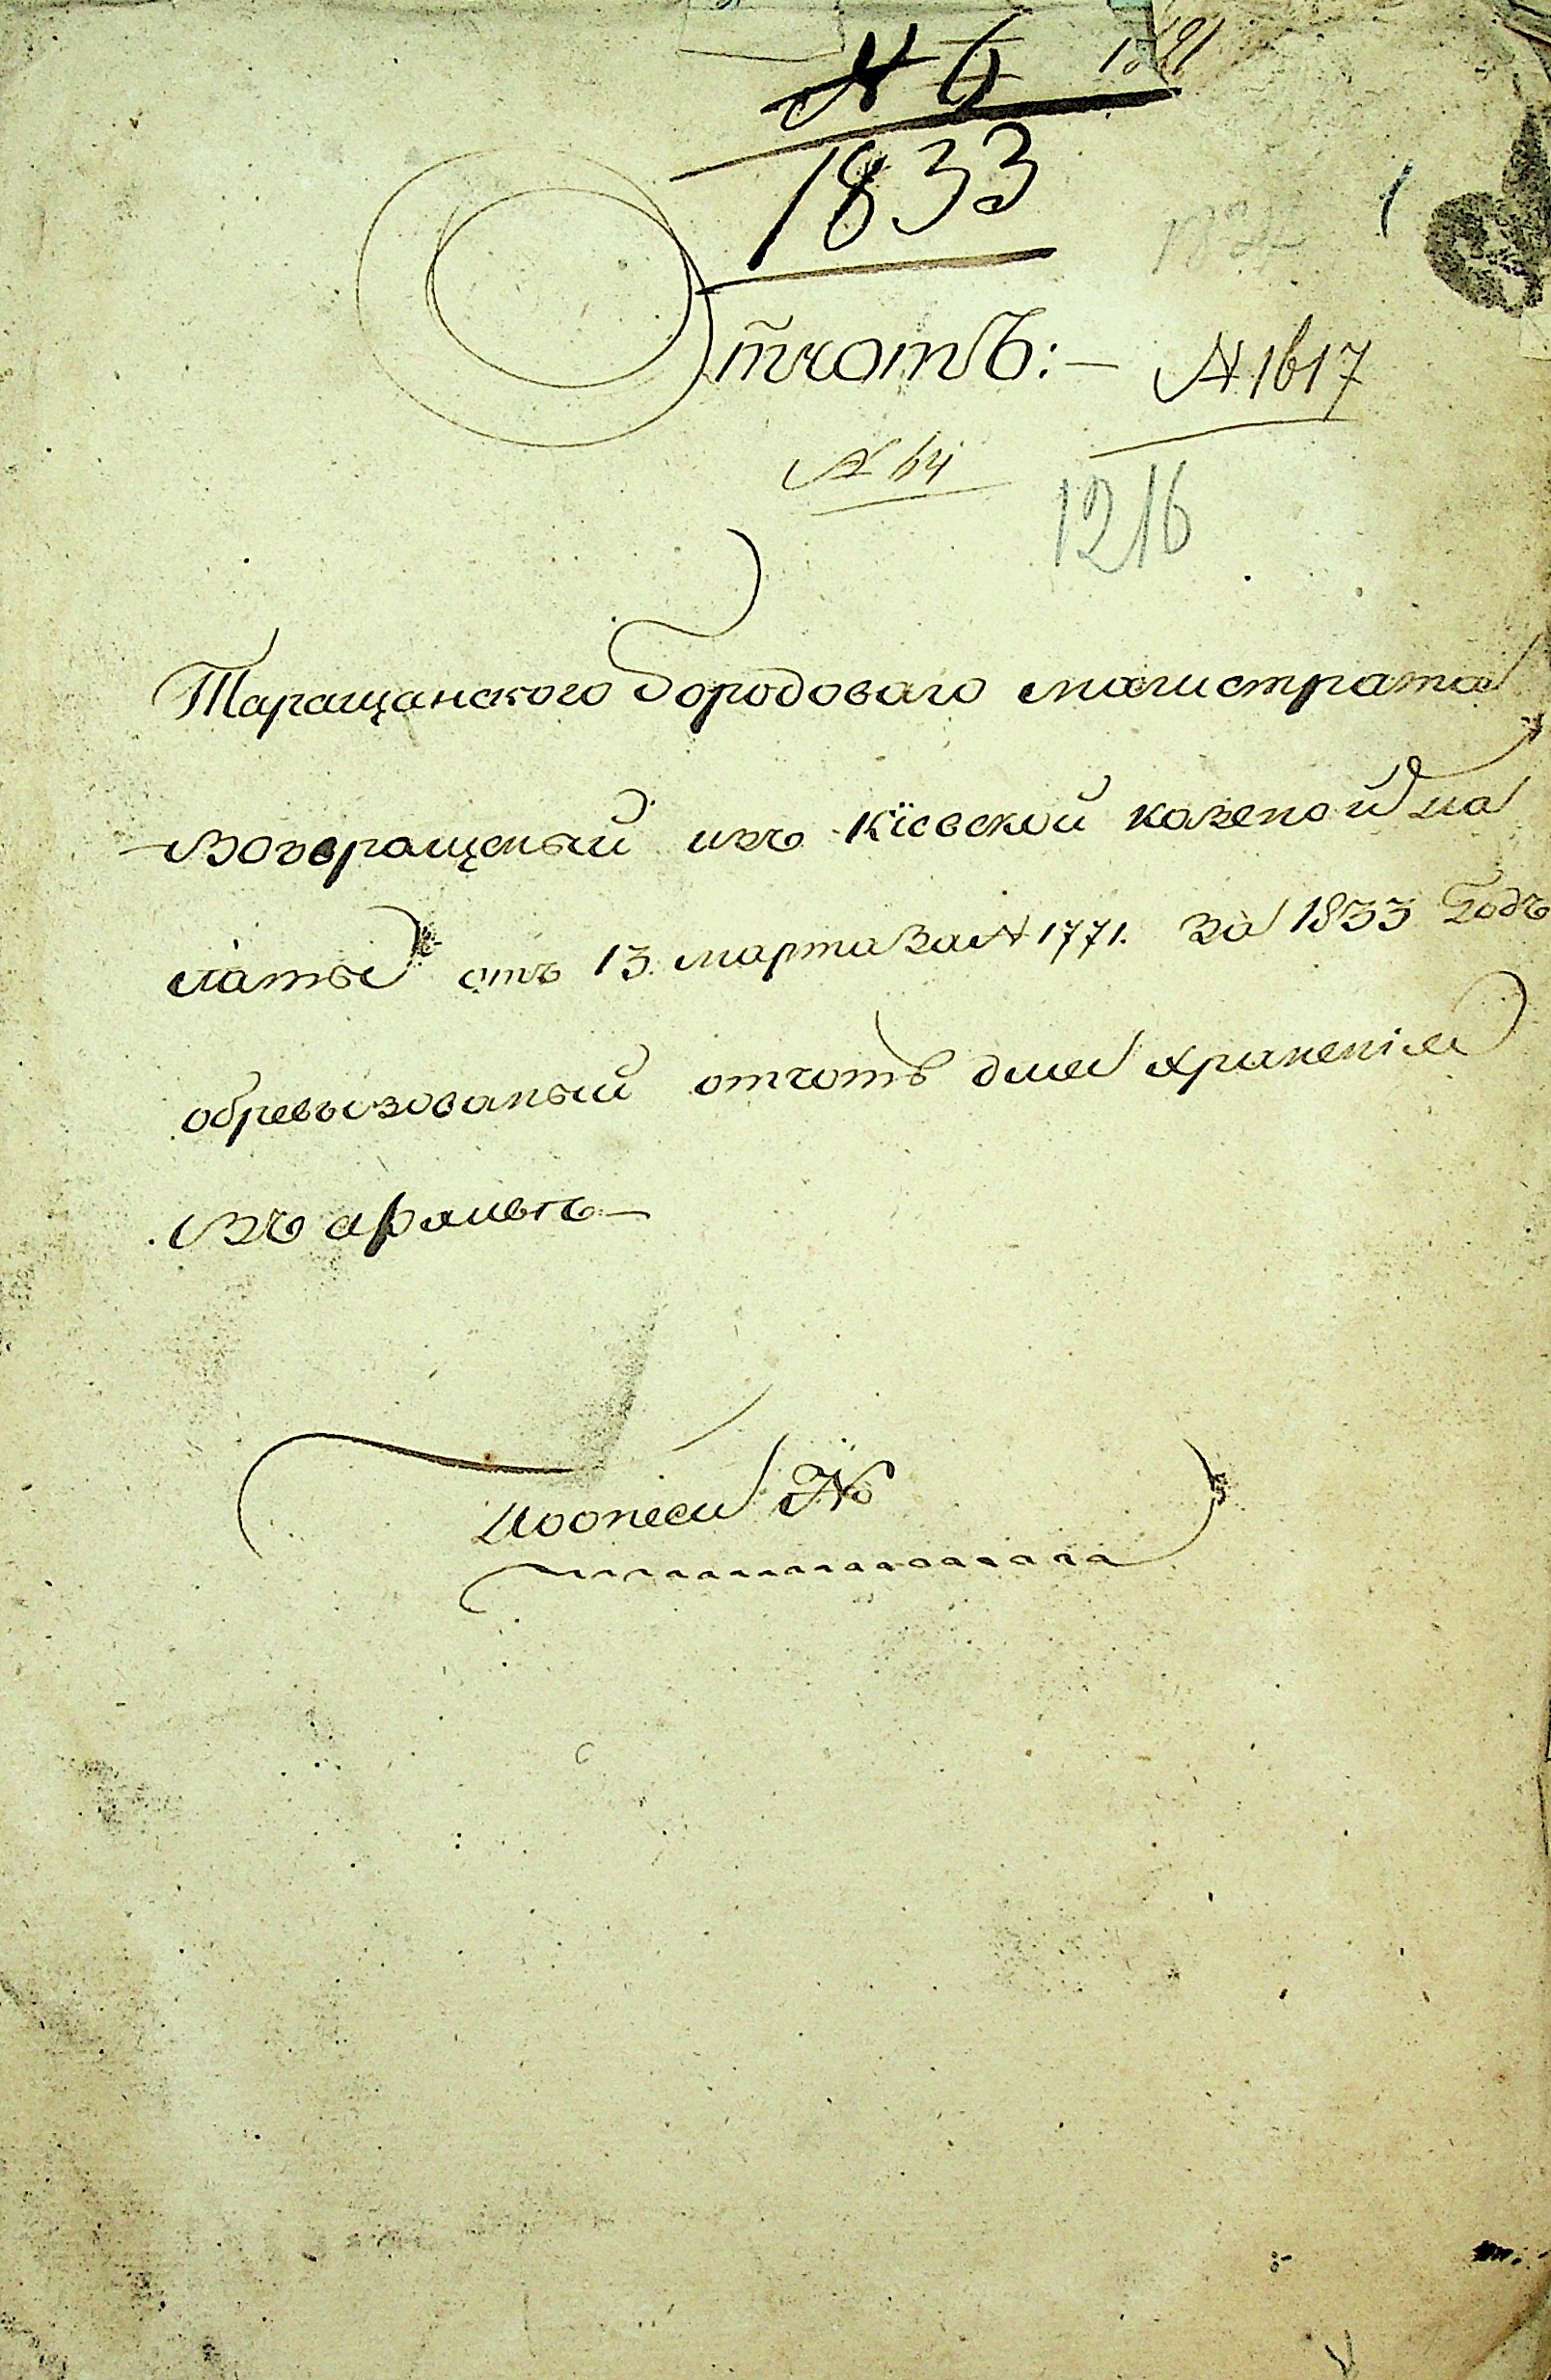 № 6
1833
Отчотъ:— № 1617
№ 64
1216
Таращанского Городоваго магистрата
возвращеный изъ Кіевской казеной па
латы отъ 13. марта за № 1771. за 1833 Годъ
обревызованый отчотъ для храненія
въ архивъ—
поописи №